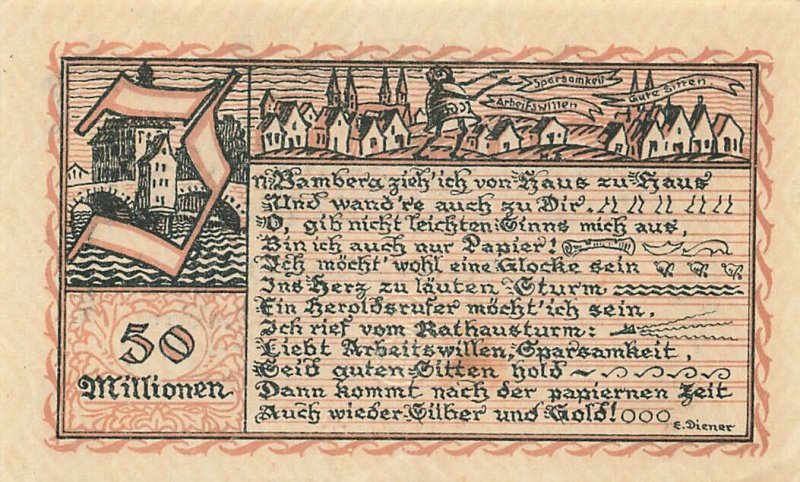 Sparsamkeit
Arbeitswillen
Gute Sitten
In Bamberg zieh' ich von Haus zu Haus
Und wand're auch zu Dir.
O, gib nicht leichten Sinns mich aus,
Bin ich auch nur Papier!
Ich möcht' wohl eine Glocke sein
Ins Herz zu läuten Sturm
Ein Heroldsrufer möcht' ich sein,
Ich rief vom Rathausturm:
Liebt Arbeitswillen, Sparsamkeit,
Seid guten Sitten hold
Dann kommt nach der papiernen Zeit
Auch wieder Silber und Gold!
50
Millionen
E. Diener